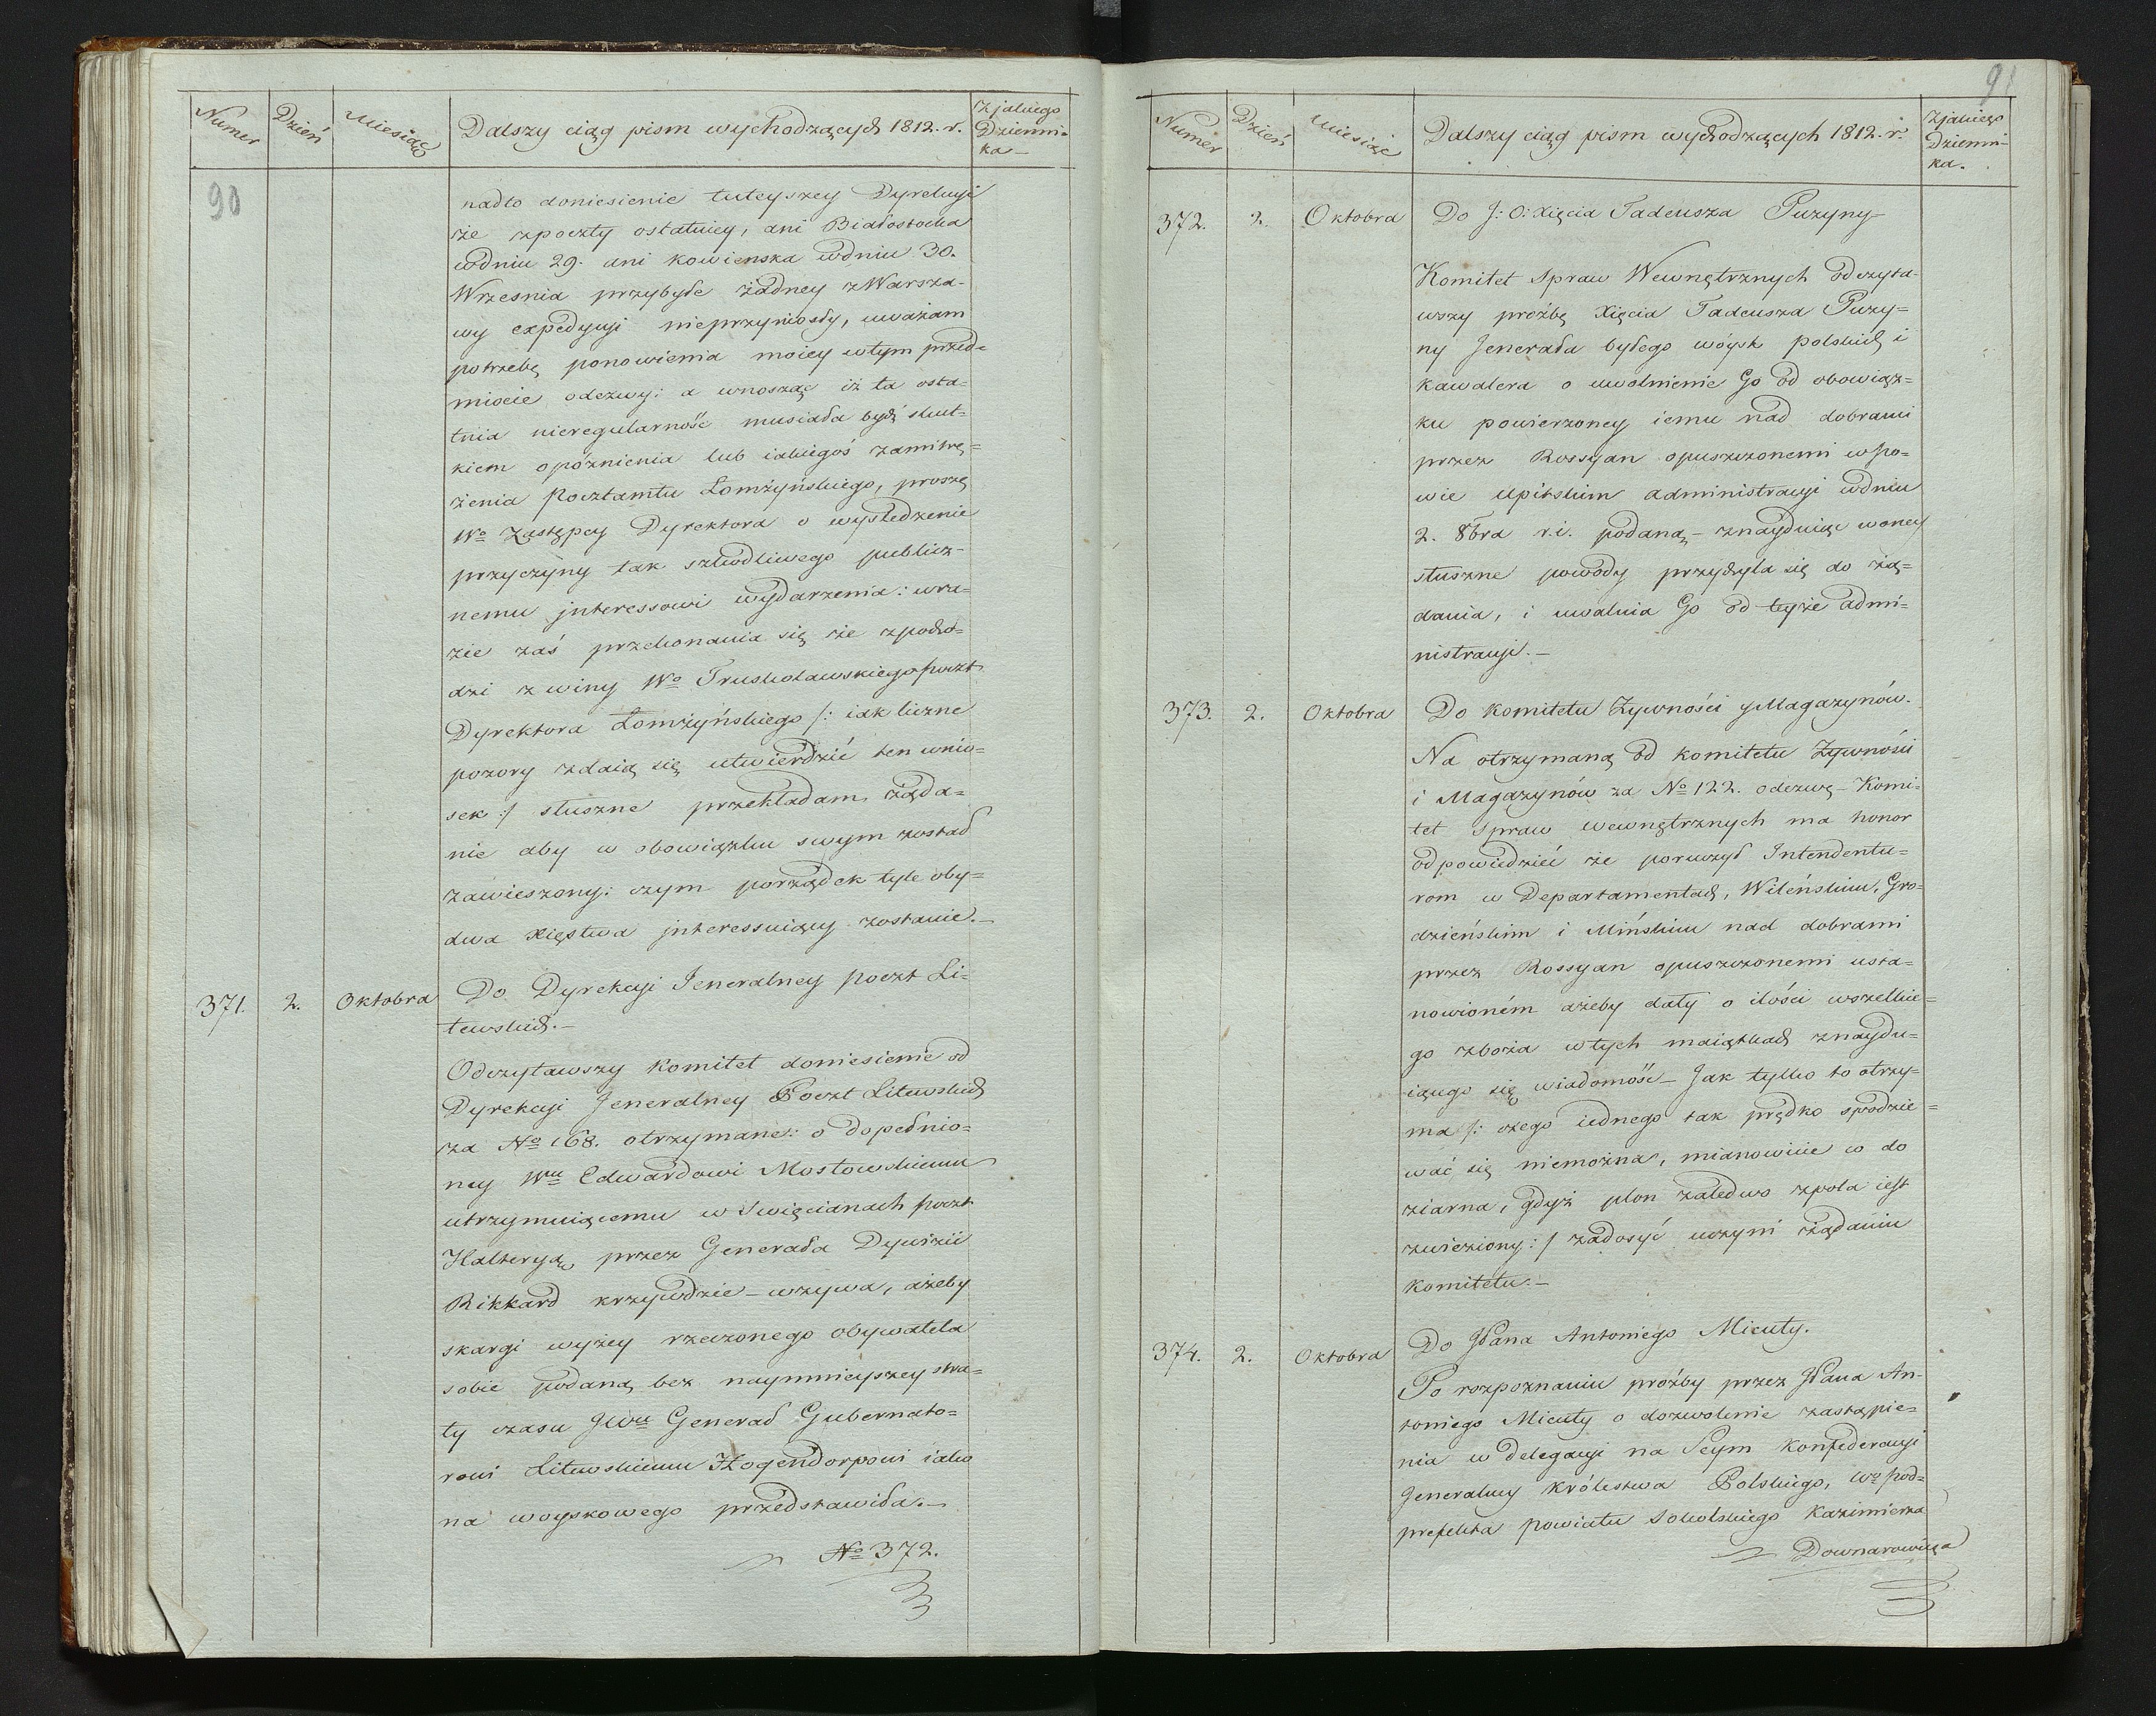 Numer
Dzień
Miesiąc
Dalszy ciąg pism wychodzących 1812. r.
z jakiego
Dzienni-
ka –
90
nadto doniesienie tuteyszey Dyrekcyi
że z poczty ostatniey, ani Białostocka
w dniu 29. ani kowienska w dniu 30.
Wrzesnia przybyłe żadney z Warsza-
wy expedycyi nieprzyniosły, uważam
potrzebę ponowienia moiey w tym przed-
miocie odezwy: a wnosząc iż ta osta-
tnia nieregularność musiała bydź skut-
kiem opóznienia lub iakiegoś zamitrę=
żenia Pocztamtu Łomżyńskiego, proszę
Wo Zastępcy Dyrektora o wysledzenie
przyczyny tak szkodliwego publicz-
nemu jnteressowi wydarzenia: w ra-
zie zaś przekonania się że z pocho=
dzi z winy Wo Truskolawskiego poczt
Dyrektora Łomżyńskiego /: iak liczne
pozory zdaią się utwierdzić ten wnio=
sek :/ słuszne przekładam żąda=
nie aby w obowiązku swym został
zawieszony: czym porządek tyle oby=
dwa xięstwa jnteressuiący zostanie.–
371. 2. Oktobra Do Dyrekcyi Jeneralney poczt Li=
tewskich.–
Odczytawszy komitet doniesienie od
Dyrekcyi Jeneralney Poczt Litewskich
za No 168. otrzymane: o dopełnio=
ney Wu Edwardowi Mostowskiemu
utrzymuiącemu w Swięcianach poczt
Halteryą, przez Generała Dywizii
Rikkard krzywdzie – wzywa, ażeby
skargi wyżey rzeczonego obywatela
sobie podaną bez naymnieyszey stra=
ty czasu JWu Generał Gubernato=
rowi Litewskiemu Hogendorpowi iako
na woyskowego przedstawiła.–
No 372.
91
Numer
Dzień
Miesiąc
Dalszy ciąg pism wychodzących 1812. r.
Zjakiego
Dzienni-
ka.
372. 2. Oktobra Do J: O: Xięcia Tadeusza Puzyny
Komitet Spraw Wewnętrznych odczyta-
wszy próżbę Xięcia Tadeusza Puzy=
ny Jenerała byłego wóysk polskich i
kawalera o uwolnienie Go od obowiąz=
ku powierzoney iemu nad dobrami
przez Rossyan opuszczonemi w Po=
wie Upitskim administracyi w dniu
2. 8bra r. i. podaną – znayduiąc w oney
słuszne powody przychyla się do żą=
dania, i uwalnia Go od teyże admi=
nistracyi.–
373. 2. Oktobra Do Komitetu Żywności y Magazynów.
Na otrzymaną od komitetu Żywności
i Magazynów za No 122. odezwę – Komi-
tet Spraw wewnętrznych ma honor
odpowiedzieć że poruczył Intendentu=
rom w Departamentach, Wileńskim, Gro=
dzieńskim i Mińskim nad dobrami
przez Rossyan opuszczonemi usta=
nowioném ażeby dały o ilości wszelkie=
go zboża w tych maiątkach znaydu=
iącego się wiadomość – Jak tylko to otrzy=
ma /: czego iednego tak prędko spodzie=
wać się niemożna, mianowicie co do
ziarna, gdyż plon zaledwo z pola iest
zwieziony :/ zadosyć uczyni żądaniu
komitetu.–
374. 2. Oktobra Do JPana Antoniego Micuty.
Po rozpoznaniu próżby przez JPana An-
toniego Micuty o dozwolenie zastąpie=
nia w delegacyi na Seym Konfederacyi
Generalney królestwa Polskiego, Wo pod=
prefekta powiatu Sokolskiego Kazimierza
Downarowicza